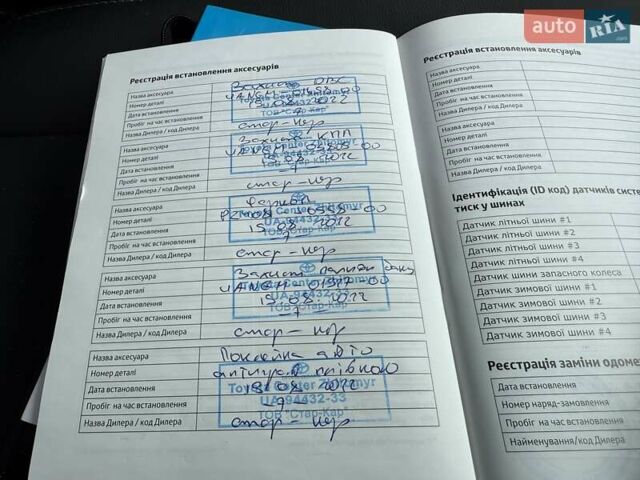 auto RIA.com
Реєстрація встановлення аксесуарів
Назва аксесуара Захист
Номер деталі
Дата встановлення 15.08.2022
Пробіг на час встановлення
Назва Дилера / код Дилера стар-кар
ТОВ "Стар-Кар"
Назва аксесуара Захист КПП
Номер деталі
Дата встановлення 15.08.2022
Пробіг на час встановлення
Назва Дилера / код Дилера стар-кар
Назва аксесуара
Номер деталі
Дата встановлення 15.08.2022
Пробіг на час встановлення
Назва Дилера / код Дилера стар-кар
ТОВ "Стар-Кар"
Назва аксесуара Захист
Номер деталі
Дата встановлення 15.08.2022
Пробіг на час встановлення
Назва Дилера / код Дилера стар-кар
Назва аксесуара Поклейка авто
Номер деталі плівкою
Дата встановлення 15.08.2022
Пробіг на час встановлення
Назва Дилера / код Дилера стар-кар
UA-94432-33
ТОВ "Стар-Кар"
Реєстрація встановлення аксесуарів
Назва аксесуара
Номер деталі
Дата встановлення
Пробіг на час встановлення
Назва Дилера / код Дилера
Назва аксесуара
Номер деталі
Дата встановлення
Пробіг на час встановлення
Назва Дилера / код Дилера
Ідентифікація (ID код) датчиків систе
тиск у шинах
Датчик літньої шини #1
Датчик літньої шини #2
Датчик літньої шини #3
Датчик літньої шини #4
Датчик шини запасного колеса
Датчик зимової шини #1
Датчик зимової шини #2
Датчик зимової шини #3
Датчик зимової шини #4
Реєстрація заміни одоме
Дата встановлення
Номер наряд-замовлення
Пробіг на час встановлення
Найменування/код Дилера